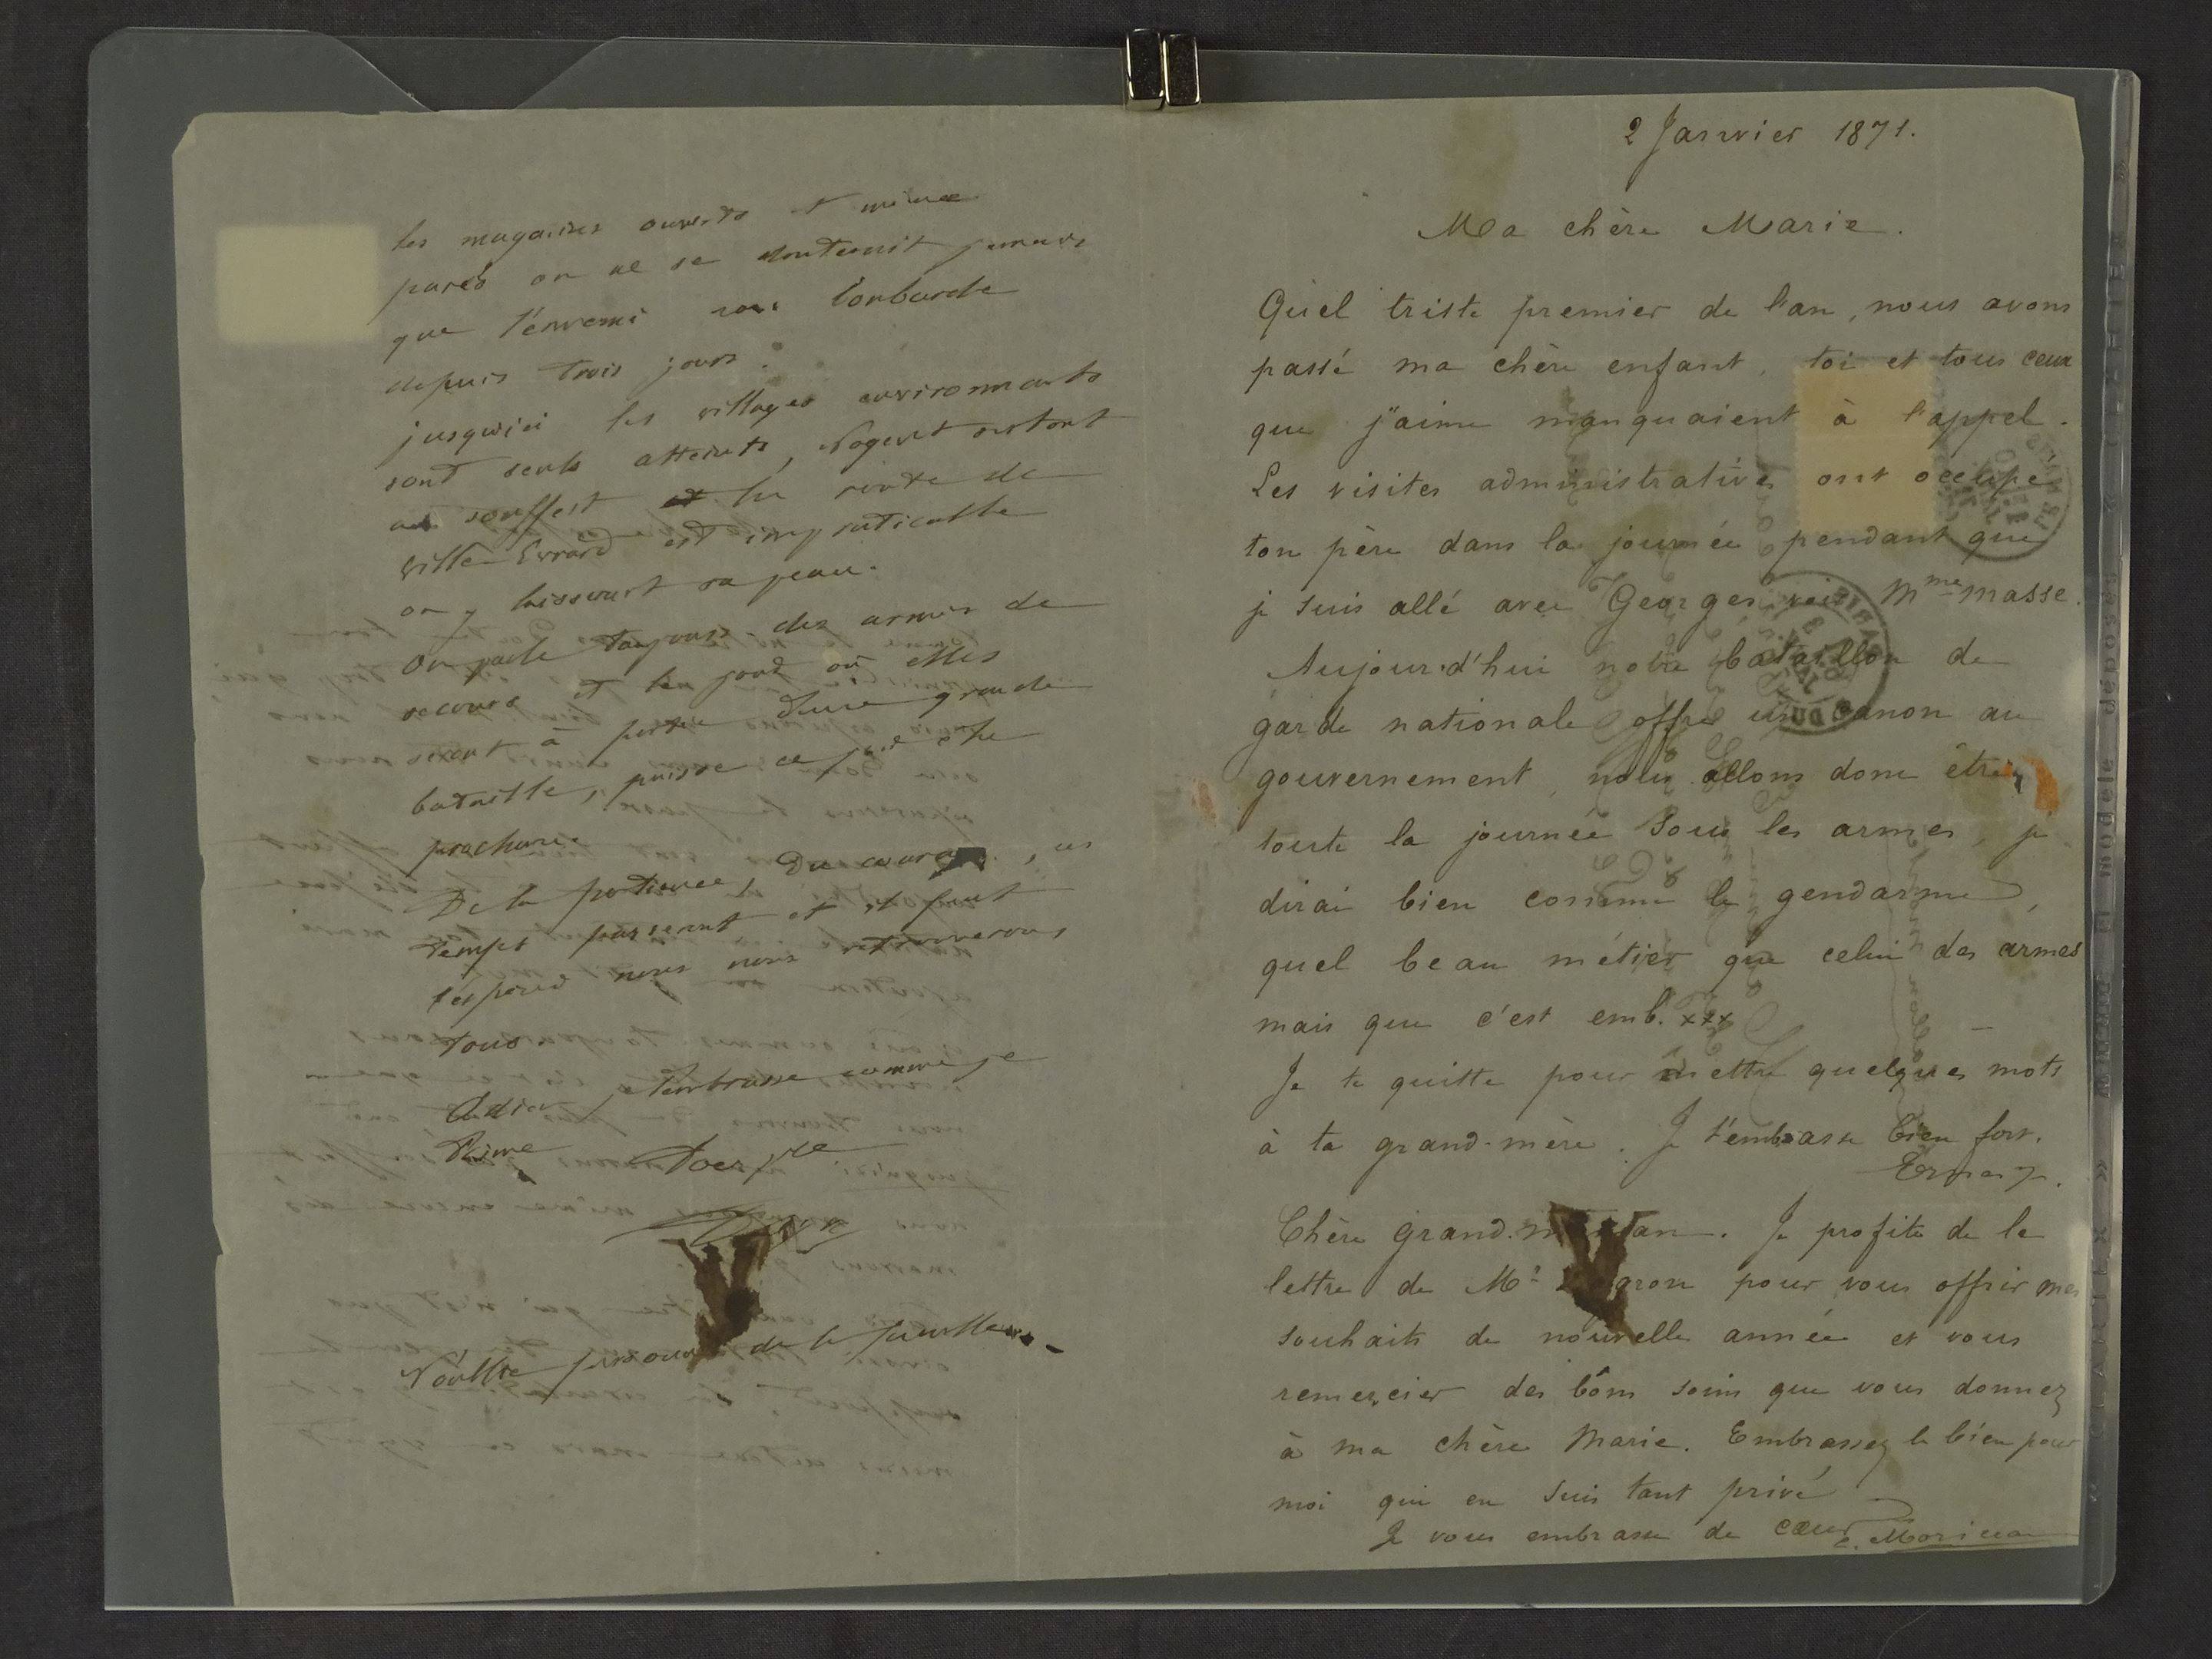 2 Janvier 1871.
Ma chère Marie.
Quel triste premier de l'an, nous avons
passé ma chère enfant, toi et tous ceux
que j'aime manquaient à l'appel.
Les visites administratives ont occupé
ton père dans la journée pendant que
je suis allé avec Georges voir Mme masse.
Aujourd'hui notre bataillon de
garde nationale offre un canon au
gouvernement, nous allons donc être
toute la journée sous les armes, je
dirai bien comme le gendarme,
quel beau métier que celui des armes
mais que c'est emb. xxx
Je te quitte pour mettre quelques mots
à ta grand-mère. Je t'embrasse bien fort.
Chère grand.maman. Je profite de la
lettre de Mr pour vous offrir mes
souhaits de nouvelle année et vous
remercier des bons soins que vous donnez
à ma chère Marie. Embrassez la bien pour
moi qui en suis tant privé
Je vous embrasse de cœur E. Moriceau
les magasins ouverts et même
parés on ne se douterait jamais
que l'ennemi nous bombarde
depuis trois jours.
jusqu'ici les villages environnants
sont seuls atteints, Nogent surtout
a souffert et la route de
ville-Evrard est impraticable
on y laisserait sa peau.
On parle toujours des armées de
secours et le jour où elles
seront à portée d'une grande
bataille, puisse ce jour être
prochain.
De la patience, du courage, ces
temps passeront et il faut
l'espérer nous nous retrouverons
tous.
Adieu, je t'embrasse comme je
t'aime
N'oublie personne de la famille.